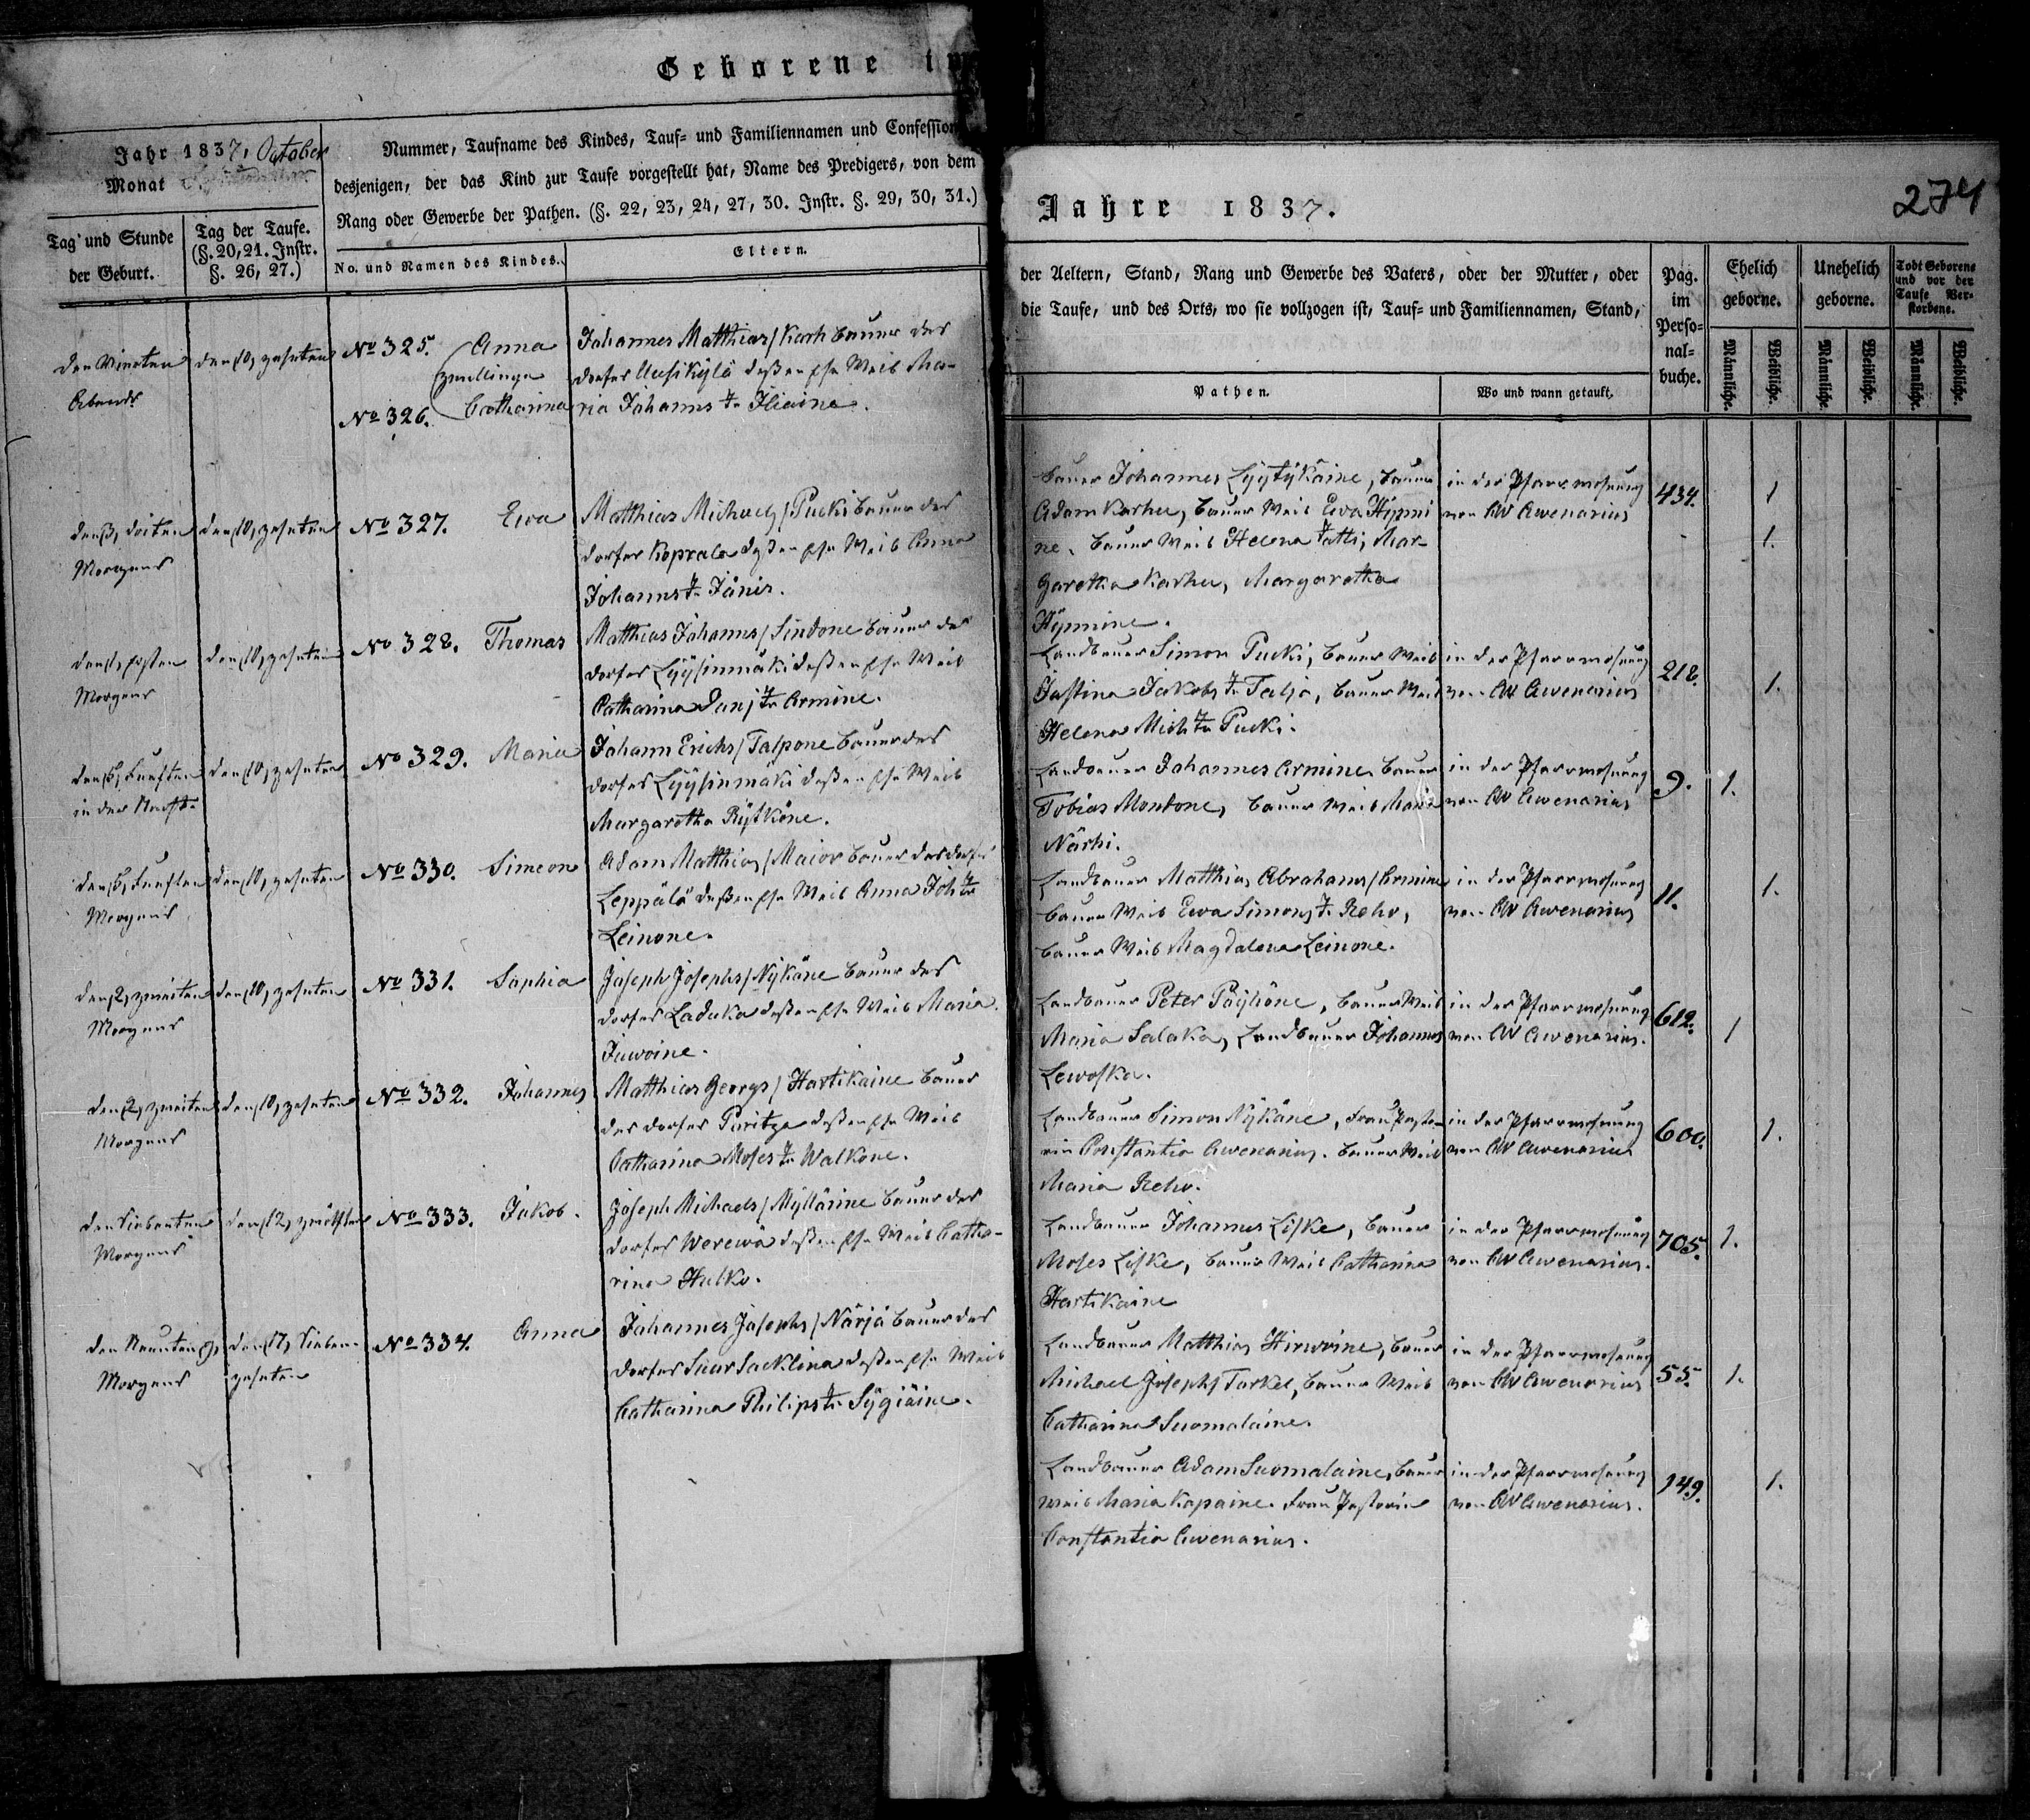 Geborene im
Jahr 1837, October
Monat
Nummer, Taufname des Kindes, Tauf= und Familiennamen und Confession
desjenigen, der das Kind zur Taufe vorgestellt hat, Name des Predigers, von dem
Rang oder Gewerbe der Pathen. (§. 22, 23, 24, 27, 30. Instr. §. 29, 30, 31.)
Tag und Stunde
der Geburt.
Tag der Taufe.
(§. 20, 21. Instr.
§. 26, 27.)
No. und Namen des Kindes.
Eltern.
den Vierten
Abends
den 10, zehnten
No 325. Anna
Zwillinge
No 326. Catharina
Johannes Matthias/ Karh bauer des
dorfes Uusikylä deßen Ehe Weib Ma-
ria Johanns Tr Iliaine.
den 3, dritten
Morgens
den 10, zehnten
No 327. Ewa
Matthias Michaels/ Pucki bauer des
dorfes Koprala deßen Ehe Weib Anna
Johanns Tr Jänis.
den 1, ersten
Morgens
den 10, zehnten
No 328. Thomas
Matthias Johanns/ Sindone bauer des
dorfes Lÿÿsinmäki deßen Ehe Weib
Catharina Danj Tr Armine.
den 5, Fünften
in der Nacht.
den 10, zehnten
No 329. Maria
Johann Erichs/ Talpone bauer des
dorfes Lÿÿsinmäki deßen Ehe Weib
Margaretha Rÿtköne.
den 5, Fünften
Morgens
den 10, zehnten
No 330. Simeon
Adam Matthias/ Maior bauer des dorfes
Leppälä deßen Ehe Weib Anna Joh Tr
Leinone.
den 2, zweiten
Morgens
den 10, zehnten
No 331. Sophia
Joseph Josephs/ Nÿkäne bauer des
dorfes Laduka deßen Ehe Weib Maria
Juwoine.
den 2, zweiten
Morgens
den 10, zehnten
No 332. Johannes
Matthias Georgs/ Hartikaine bauer
des dorfes Puritze deßen Ehe Weib
Catharina Moses Tr Walkone.
den Siebenten
Morgens
den 12, zwölften
No 333. Jakob.
Joseph Michaels/ Mÿllärine bauer des
dorfes Werewä deßen Ehe Weib Catha-
rina Hulko.
den Neunten 9,
Morgens
den 17, Sieben-
zehnten
No 334. Anna
Johannes Josephs/ Närjä bauer des
dorfes Suur Sacklina deßen Ehe Weib
Catharina Philips Tr Sÿgiäine.
Jahre 1837.
274
der Aeltern, Stand, Rang und Gewerbe des Vaters, oder der Mutter, oder
die Taufe, und des Orts, wo sie vollzogen ist, Tauf= und Familiennamen, Stand,
Pathen.
Wo und wann getauft.
Pag.
im
Perso=
nal=
buche.
Ehelich
geborne.
Unehelich
geborne.
Todt Geborene
und vor der
Taufe Ver=
storbene.
Männliche.
Weibliche.
Männliche.
Weibliche.
Männliche.
Weibliche.
bauer Johannes Lÿÿtÿkäine, bauer
Adam Karhu, bauer Weib Ewa Hÿnni
ne, bauer Weib Helena Tatti, Mar-
garetha Karhu, Margaretha
Hÿnnine.
in der Pfarrwohnung
von AW Awenarius
434. 1
1.
Landbauer Simon Pucki, bauer Weib
Justina Jakobs Tr Talja, bauer Weib
Helena Mich Tr Pucki.
in der Pfarrwohnung
von AW Awenarius
218. 1.
Landbauer Johannes Armine, bauer
Tobias Mondone, bauer Weib Maria
Närhi.
in der Pfarrwohnung
von AW Awenarius
9. 1.
Landbauer Matthias Abrahams/ Armine
bauer Weib Ewa Simons Tr Reho,
bauer Weib Magdalena Leinone.
in der Pfarrwohnung
von AW Awenarius
11. 1.
Landbauer Peter Päÿhöne, bauer Weib
Maria Salaka, Landbauer Johannes
Lewoska.
in der Pfarrwohnung
von AW Awenarius.
612. 1
Landbauer Simon Nÿkäne, Frau Pasto-
rin Constantia Awenarius. bauer Weib
Maria Reho.
in der Pfarrwohnung
von AW Awenarius
600. 1.
Landbauer Johannes Liske, bauer
Moses Liske, bauer Weib Catharina
Hartikaine
in der Pfarrwohnung
von AW Awenarius.
705. 1.
Landbauer Matthias Hirwoine, bauer
Michael Josephs/ Torkel, bauer Weib
Catharina Suomalaine.
in der Pfarrwohnung
von AW Awenarius
55. 1.
Landbauer Adam Suomalaine, bauer
Weib Maria Kopaine. Frau Pastorin
Constantia Awenarius.
in der Pfarrwohnung
von AW Awenarius.
149. 1.